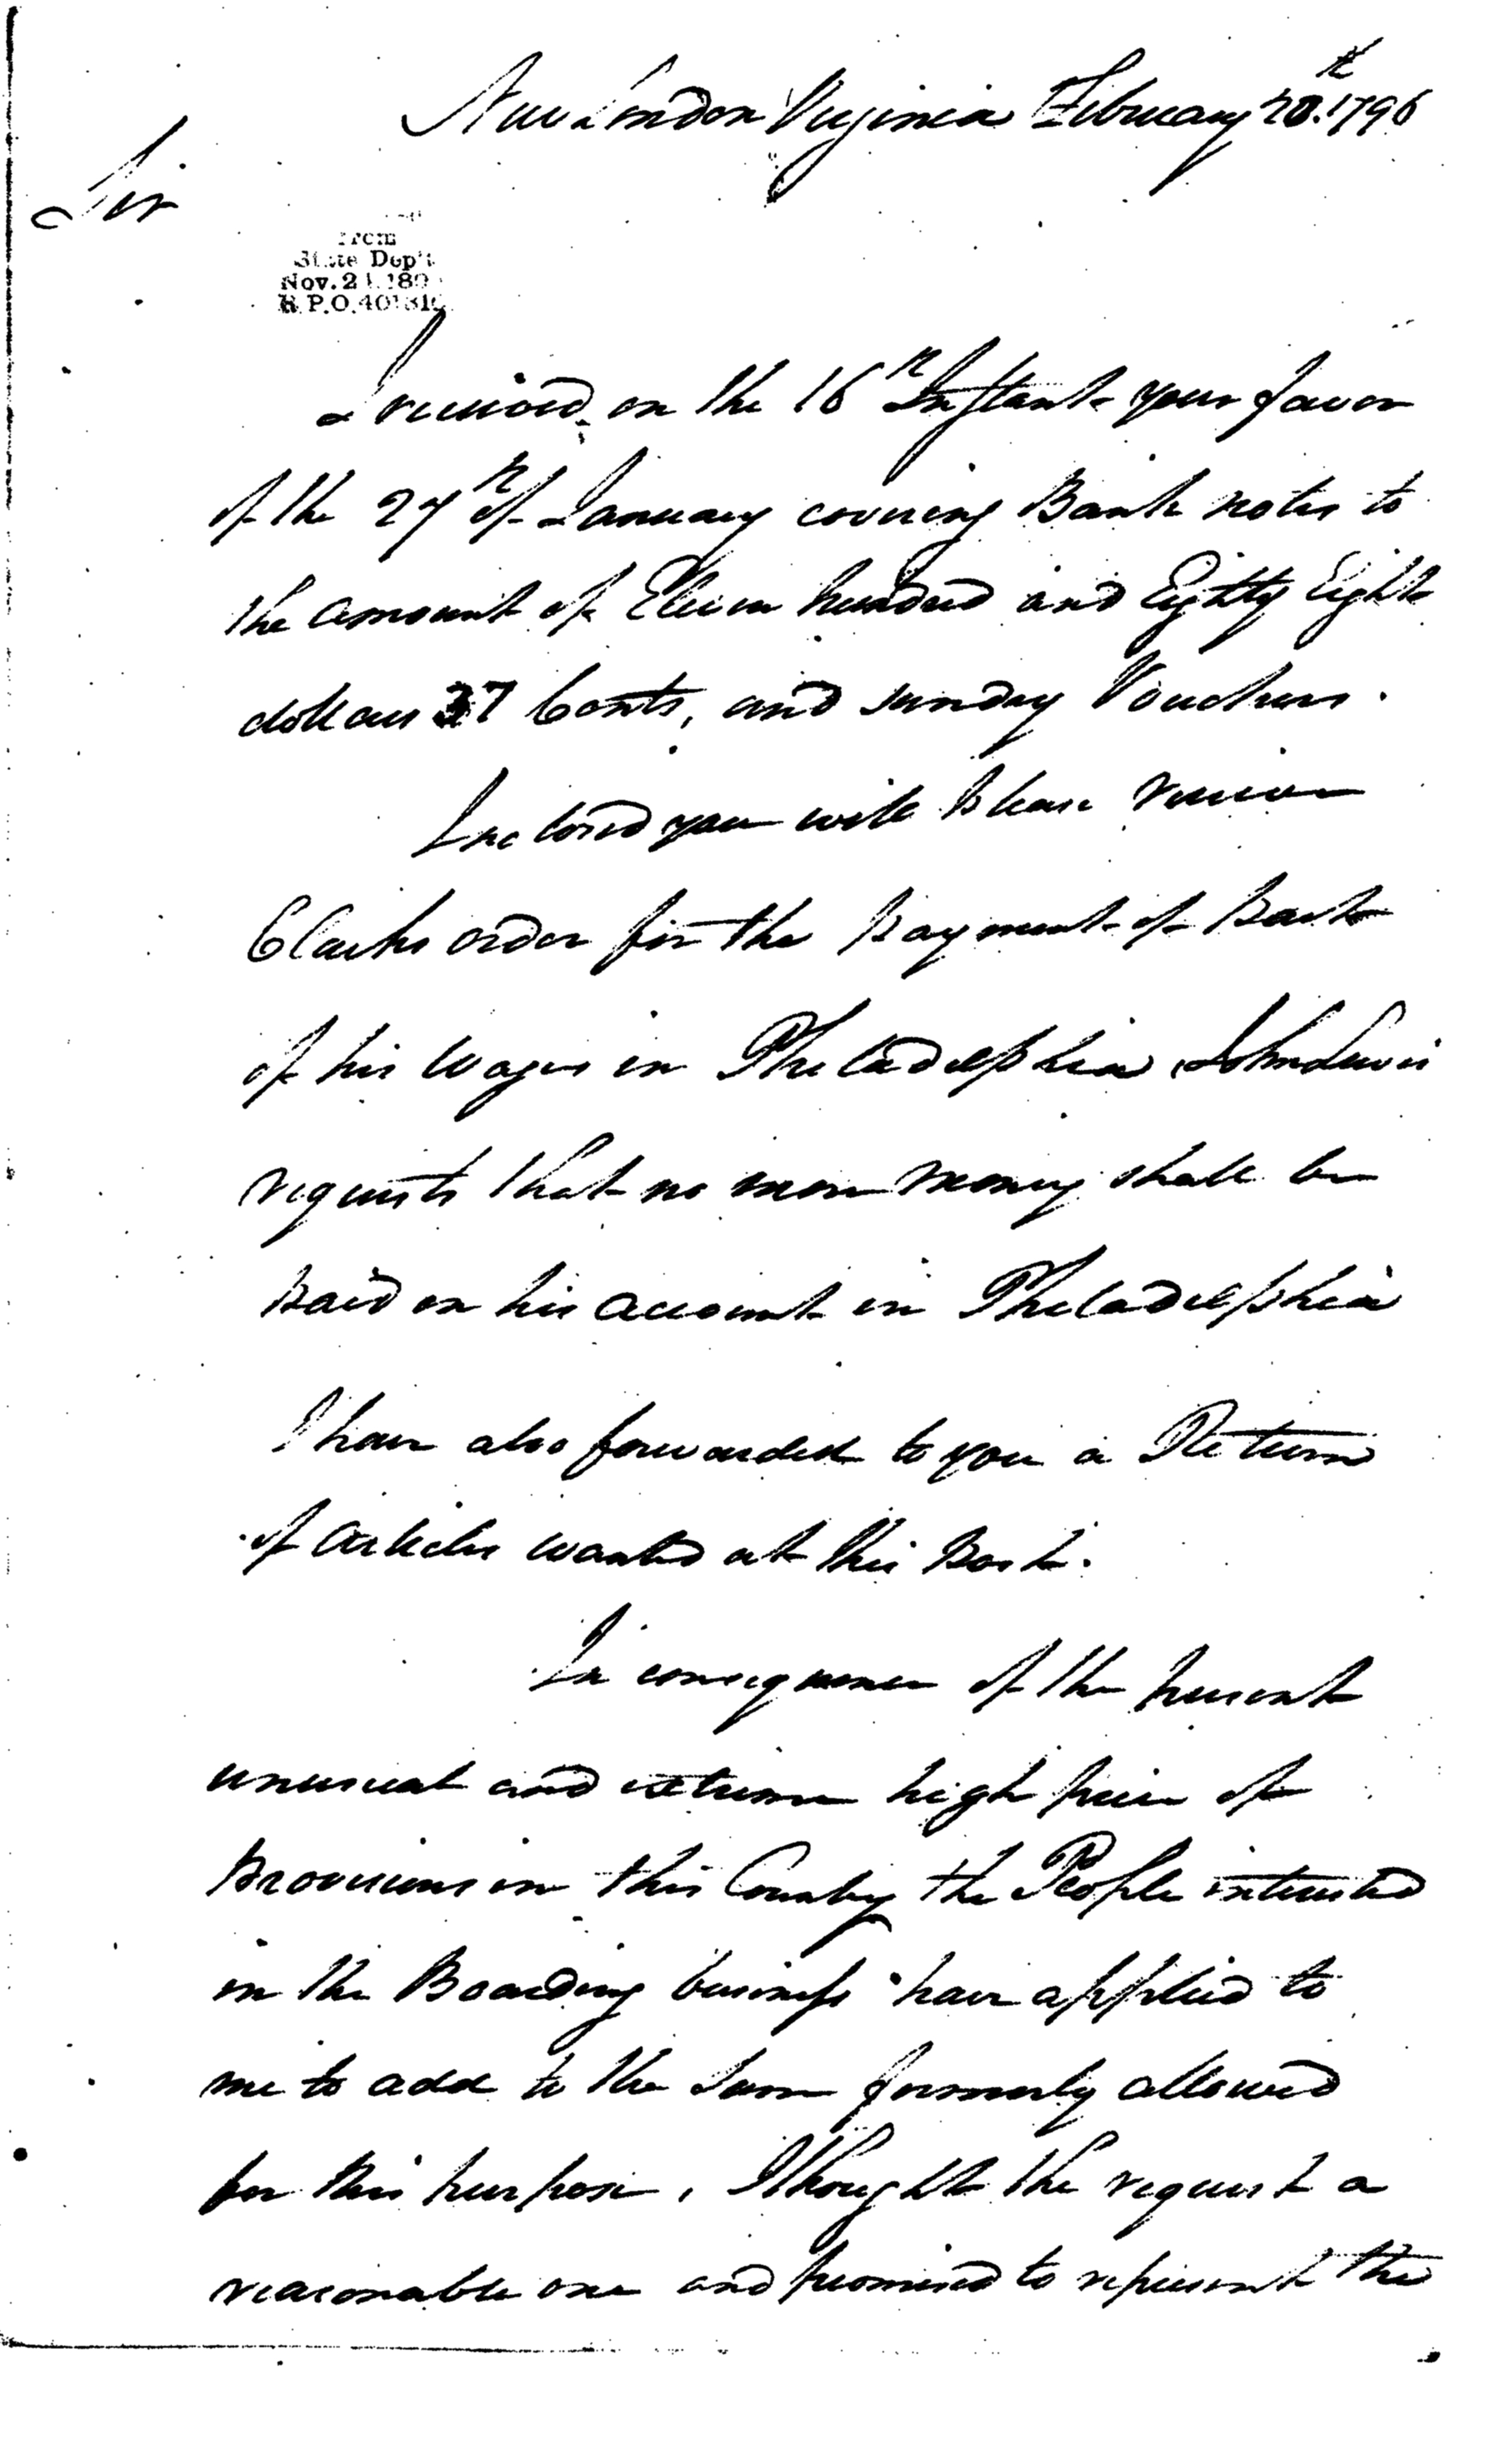 New London Virginia February 20th. 1796
Sir
From
State Dep't
Nov. 21 189
R.P.O. 40131
I received on the 16th Instant your favor
of the 27th of January covering Bank notes to
the amount of Eleven hundred and Eighty Eight
dollars 37 Cents, and sundry Vouchers.
Inclosed you will please receive
Clarks order for the payment of Part
of his Wages in Philadelphia, John Lewis
requests that no more money shall be
paid on his account in Philadelphia
I have also forwarded to you a Return
of Articles wanted at this Post.
In consequence of the present
unusual and extreme high price of
Provisions in this Country the People interested
in the Boarding business have applied to
me to add to the Sum formerly allowed
for this purpose, I thought the request a
reasonable one and promised to represent the